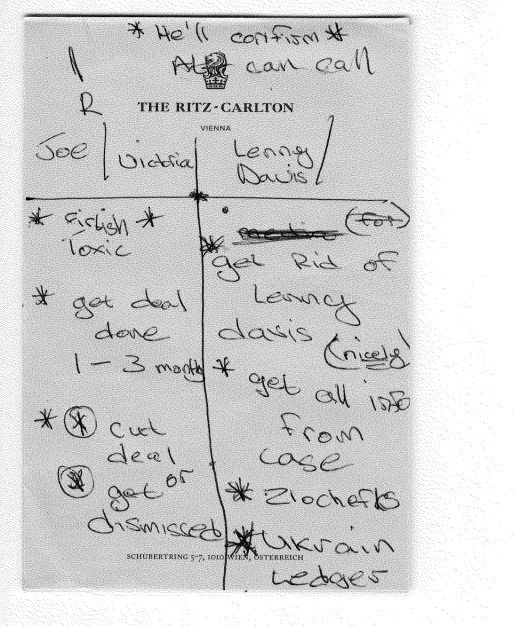 * He'll confirm *
can call
R
THE RITZ-CARLTON
VIENNA
Joe
Victria
Lenny
Davis
* Firtish *
Toxic
* get deal
done
1-3 month
* * cut
deal
or
* get
dismissed
media
(for)
* get Rid of
Lenny
davis
(nicely)
* get all info
From
case
* Zlochefks
* Ukrain
Ledger
SCHUBERTRING 5-7, 1010 WIEN, ÖSTERREICH